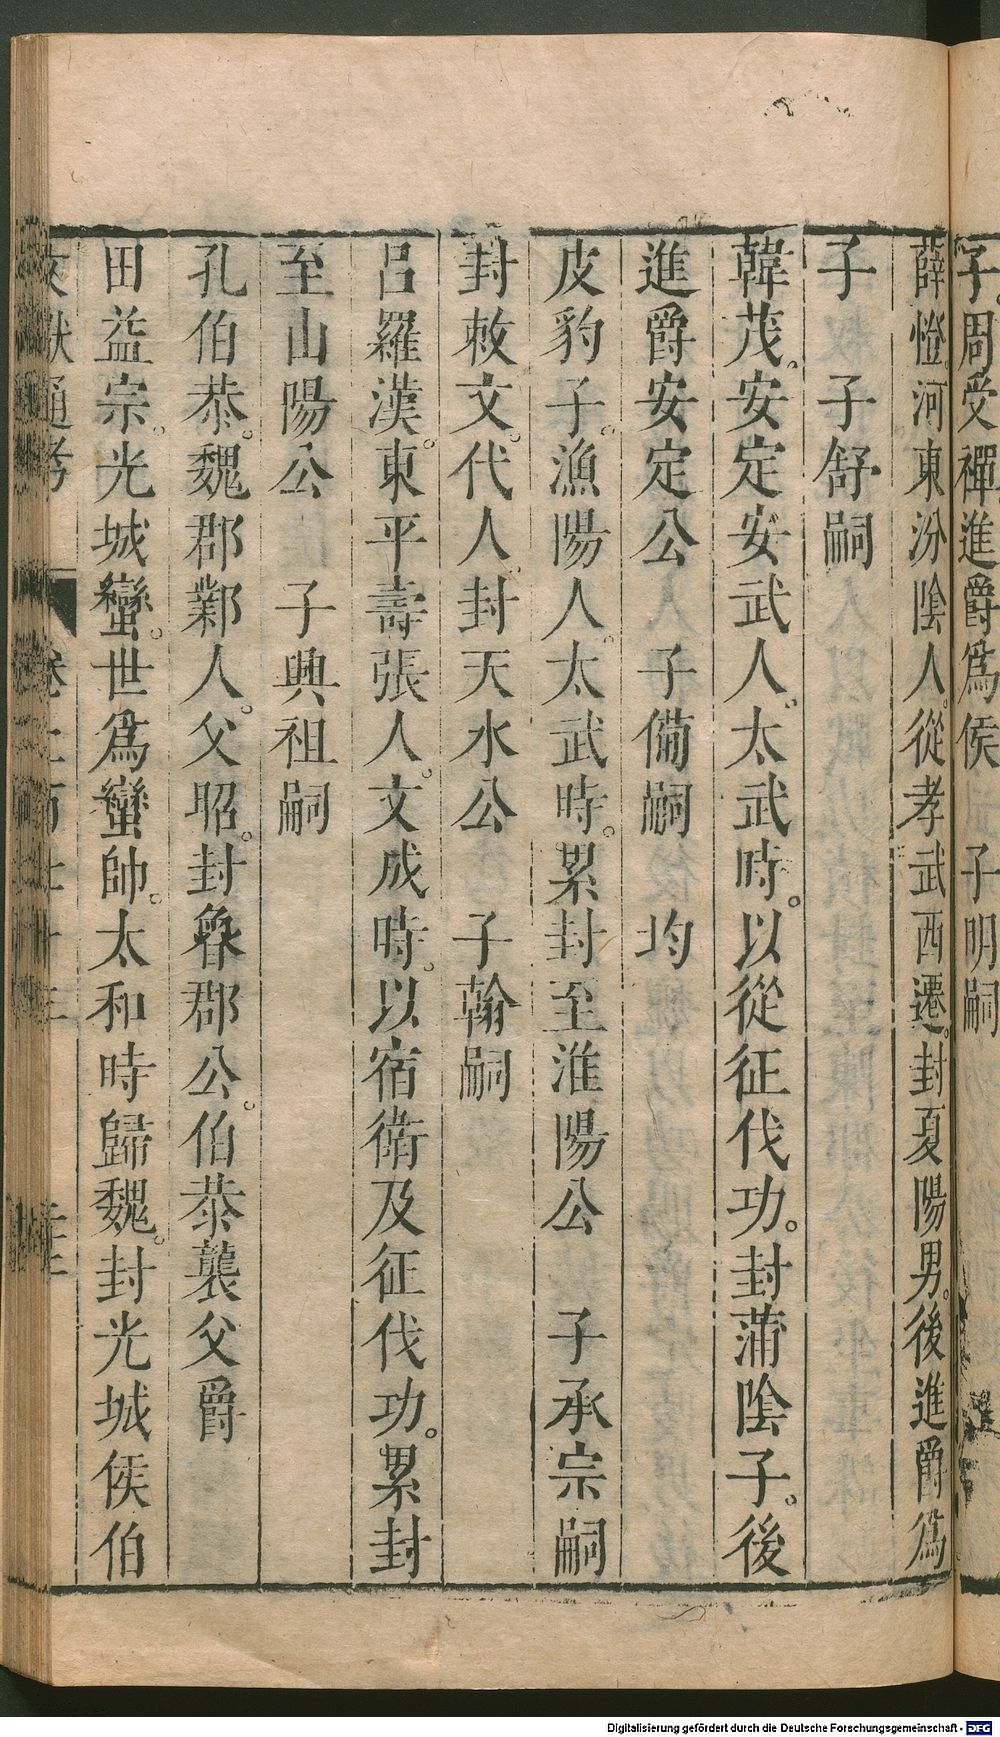 子。周受禪進爵爲侯　子明嗣
薛憕河東汾陰人。從孝武西遷。封夏陽男。後進爵爲
子　子舒嗣
韓茂。安定安武人。太武時。以從征伐功。封蒲陰子。後
進爵安定公　子備嗣　均
皮豹子。漁陽人。太武時。累封至淮陽公　子承宗嗣
封敕文。代人。封天水公　子翰嗣
呂羅漢。東平壽張人。文成時。以宿衛及征伐功。累封
至山陽公　子興祖嗣
孔伯恭。魏郡鄴人。父昭。封魯郡公。伯恭襲父爵
田益宗。光城蠻。世爲蠻帥。太和時歸魏。封光城侯伯
通考
Digitalisierung gefördert durch die Deutsche Forschungsgemeinschaft - DFG